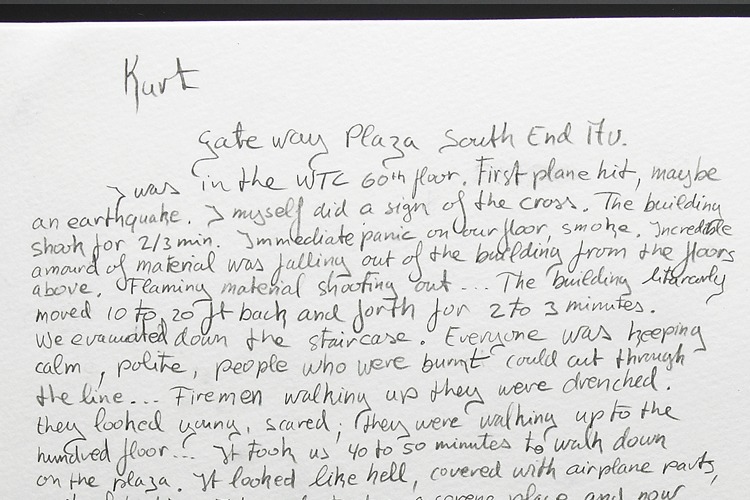 Kurt
Gateway Plaza South End Av.
I was in the WTC 60th floor. First plane hit, maybe
an earthquake. I myself did a sign of the cross. The building
shook for 2/3 min. Immediate panic on our floor, smoke. Incredible
amount of material was falling out of the building from the floors
above. Flaming material shooting out... The building litarcaly
moved 10 to 20 ft back and forth for 2 to 3 minutes.
We evacuated down the staircase. Everyone was keeping
calm, polite, people who were burnt could cut through
the line... Firemen walking up they were drenched.
they looked young, scared; they were walking up to the
hundred floor... It took us 40 to 50 minutes to walk down
on the plaza. It looked like hell, covered with airplane parts,
a serene place and now